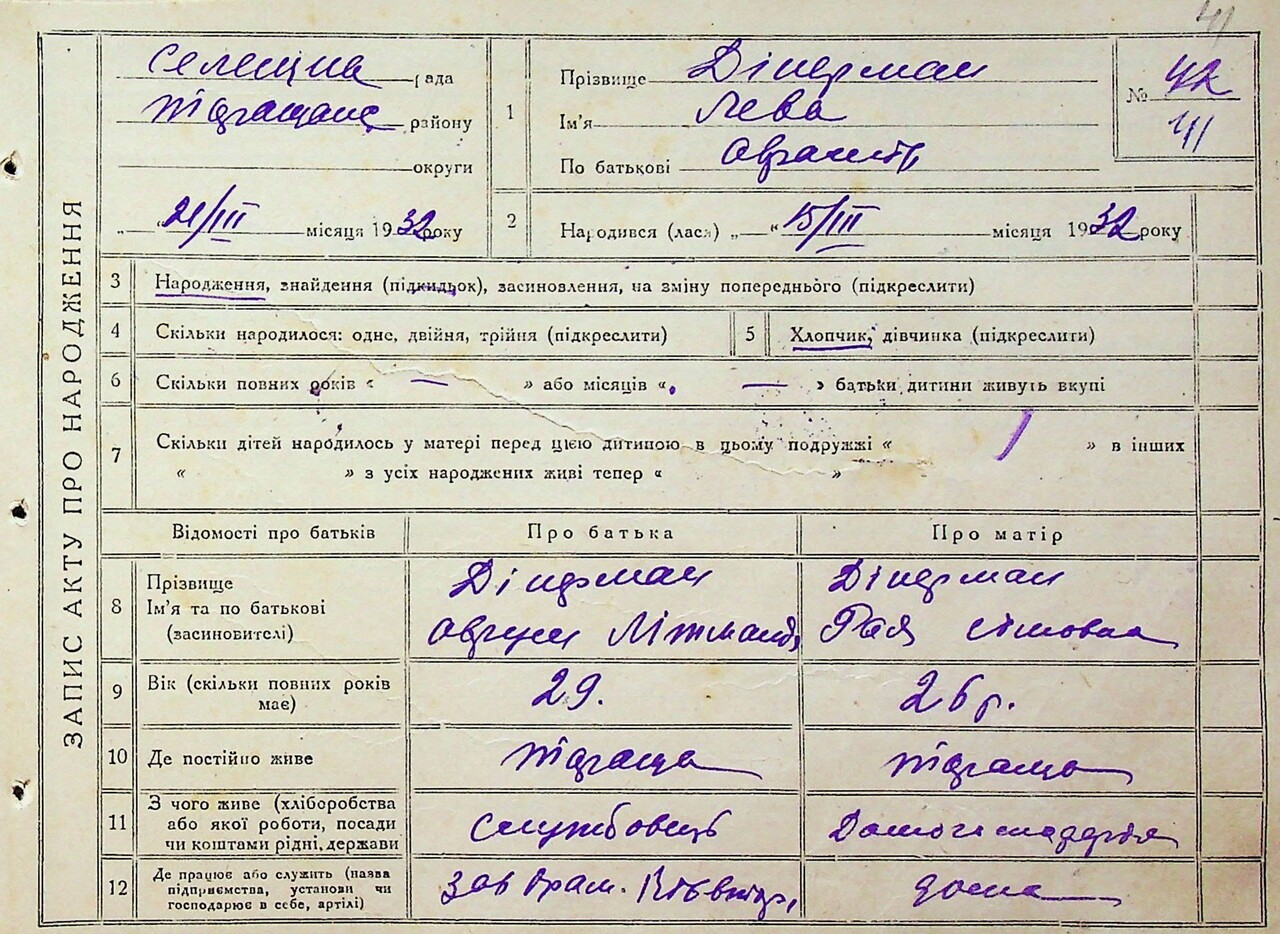 41
ЗАПИС АКТУ ПРО НАРОДЖЕННЯ
Селещна рада
району
округи
„ “ 21/III місяця 1932 року
1
Прізвище Дінерман
Ім'я Лева
По батькові
№ 42
41
2
Народився (лася) „ “ 15/III місяця 1932 року
3
Народження, знайдення (підкидьок), засиновлення, на зміну попереднього (підкреслити)
4
Скільки народилося: одне, двійня, трійня (підкреслити)
5
Хлопчик, дівчинка (підкреслити)
6
Скільки повних років « — » або місяців « — » батьки дитини живуть вкупі
7
Скільки дітей народилось у матері перед цією дитиною в цьому подружжі « 1 » в інших
« » з усіх народжених живі тепер « »
Відомості про батьків
Про батька
Про матір
8
Прізвище
Ім'я та по батькові
(засиновителі)
Дінерман
Дінерман
Рая
9
Вік (скільки повних років
має)
29.
26 р.
10
Де постійно живе
11
З чого живе (хліборобства
або якої роботи, посади
чи коштами рідні, держави
службовець
12
Де працює або служить (назва
підприємства, установи чи
господарює в себе, артілі)
зав
дома